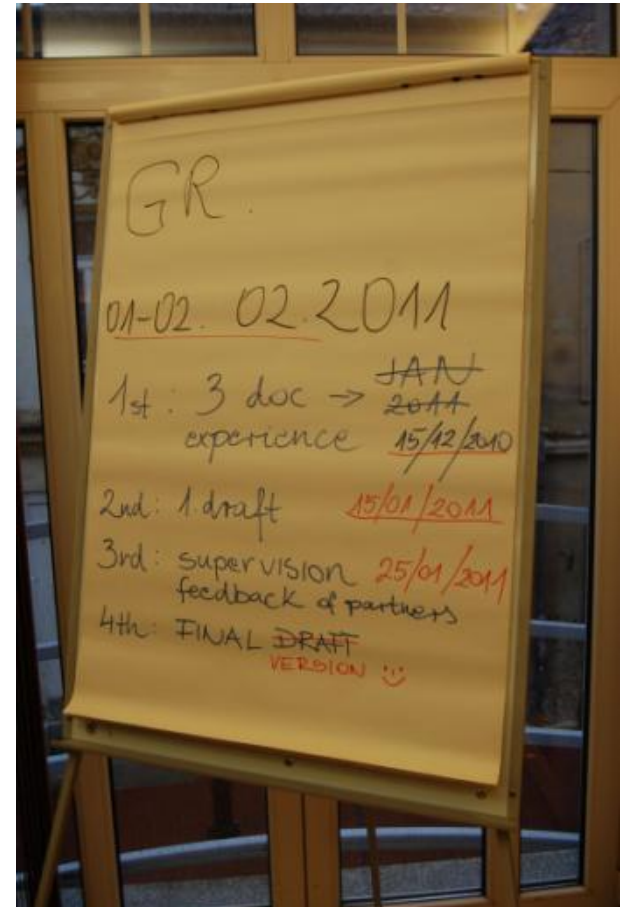 GR.
01-02. 02.2011
1st: 3 doc → JAN
2011
experience 15/12/2010
2nd: 1. draft 15/01/2011
3rd: supervision 25/01/2011
feedback of partners
4th: FINAL DRAFT
VERSION :)